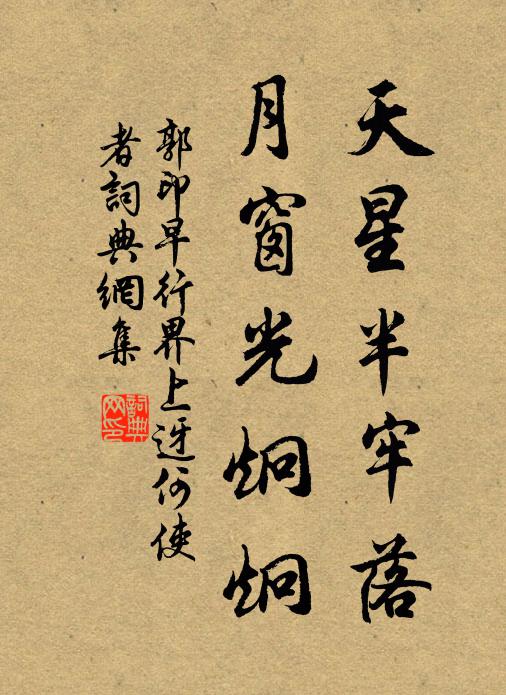 天星半牢落
月窗光炯炯
郭印早行界上迓何使
者詞典網集
詞典
网印